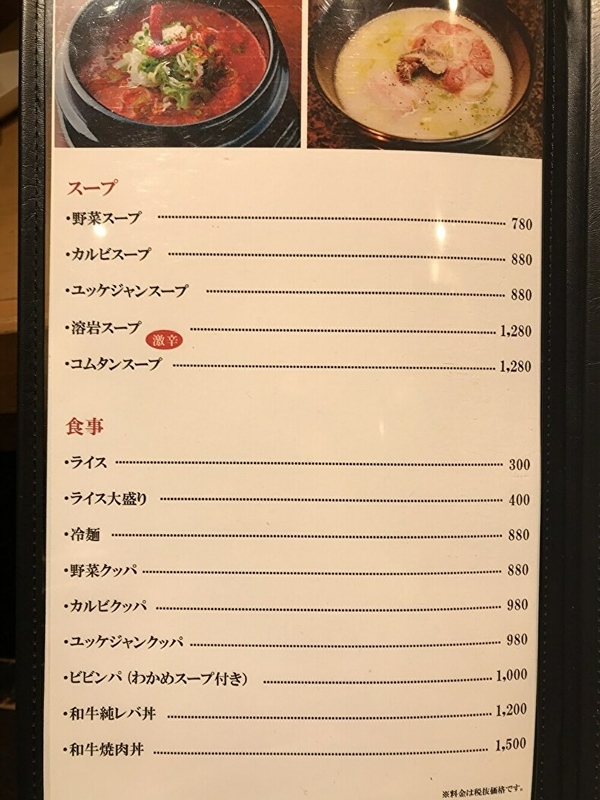 スープ
・野菜スープ 780
・カルビスープ 880
・ユッケジャンスープ 880
・溶岩スープ 激辛 1,280
・コムタンスープ 1,280
食事
・ライス 300
・ライス大盛り 400
・冷麺 880
・野菜クッパ 880
・カルビクッパ 980
・ユッケジャンクッパ 980
・ビビンパ（わかめスープ付き） 1,000
・和牛純レバ丼 1,200
・和牛焼肉丼 1,500
※料金は税抜価格です。